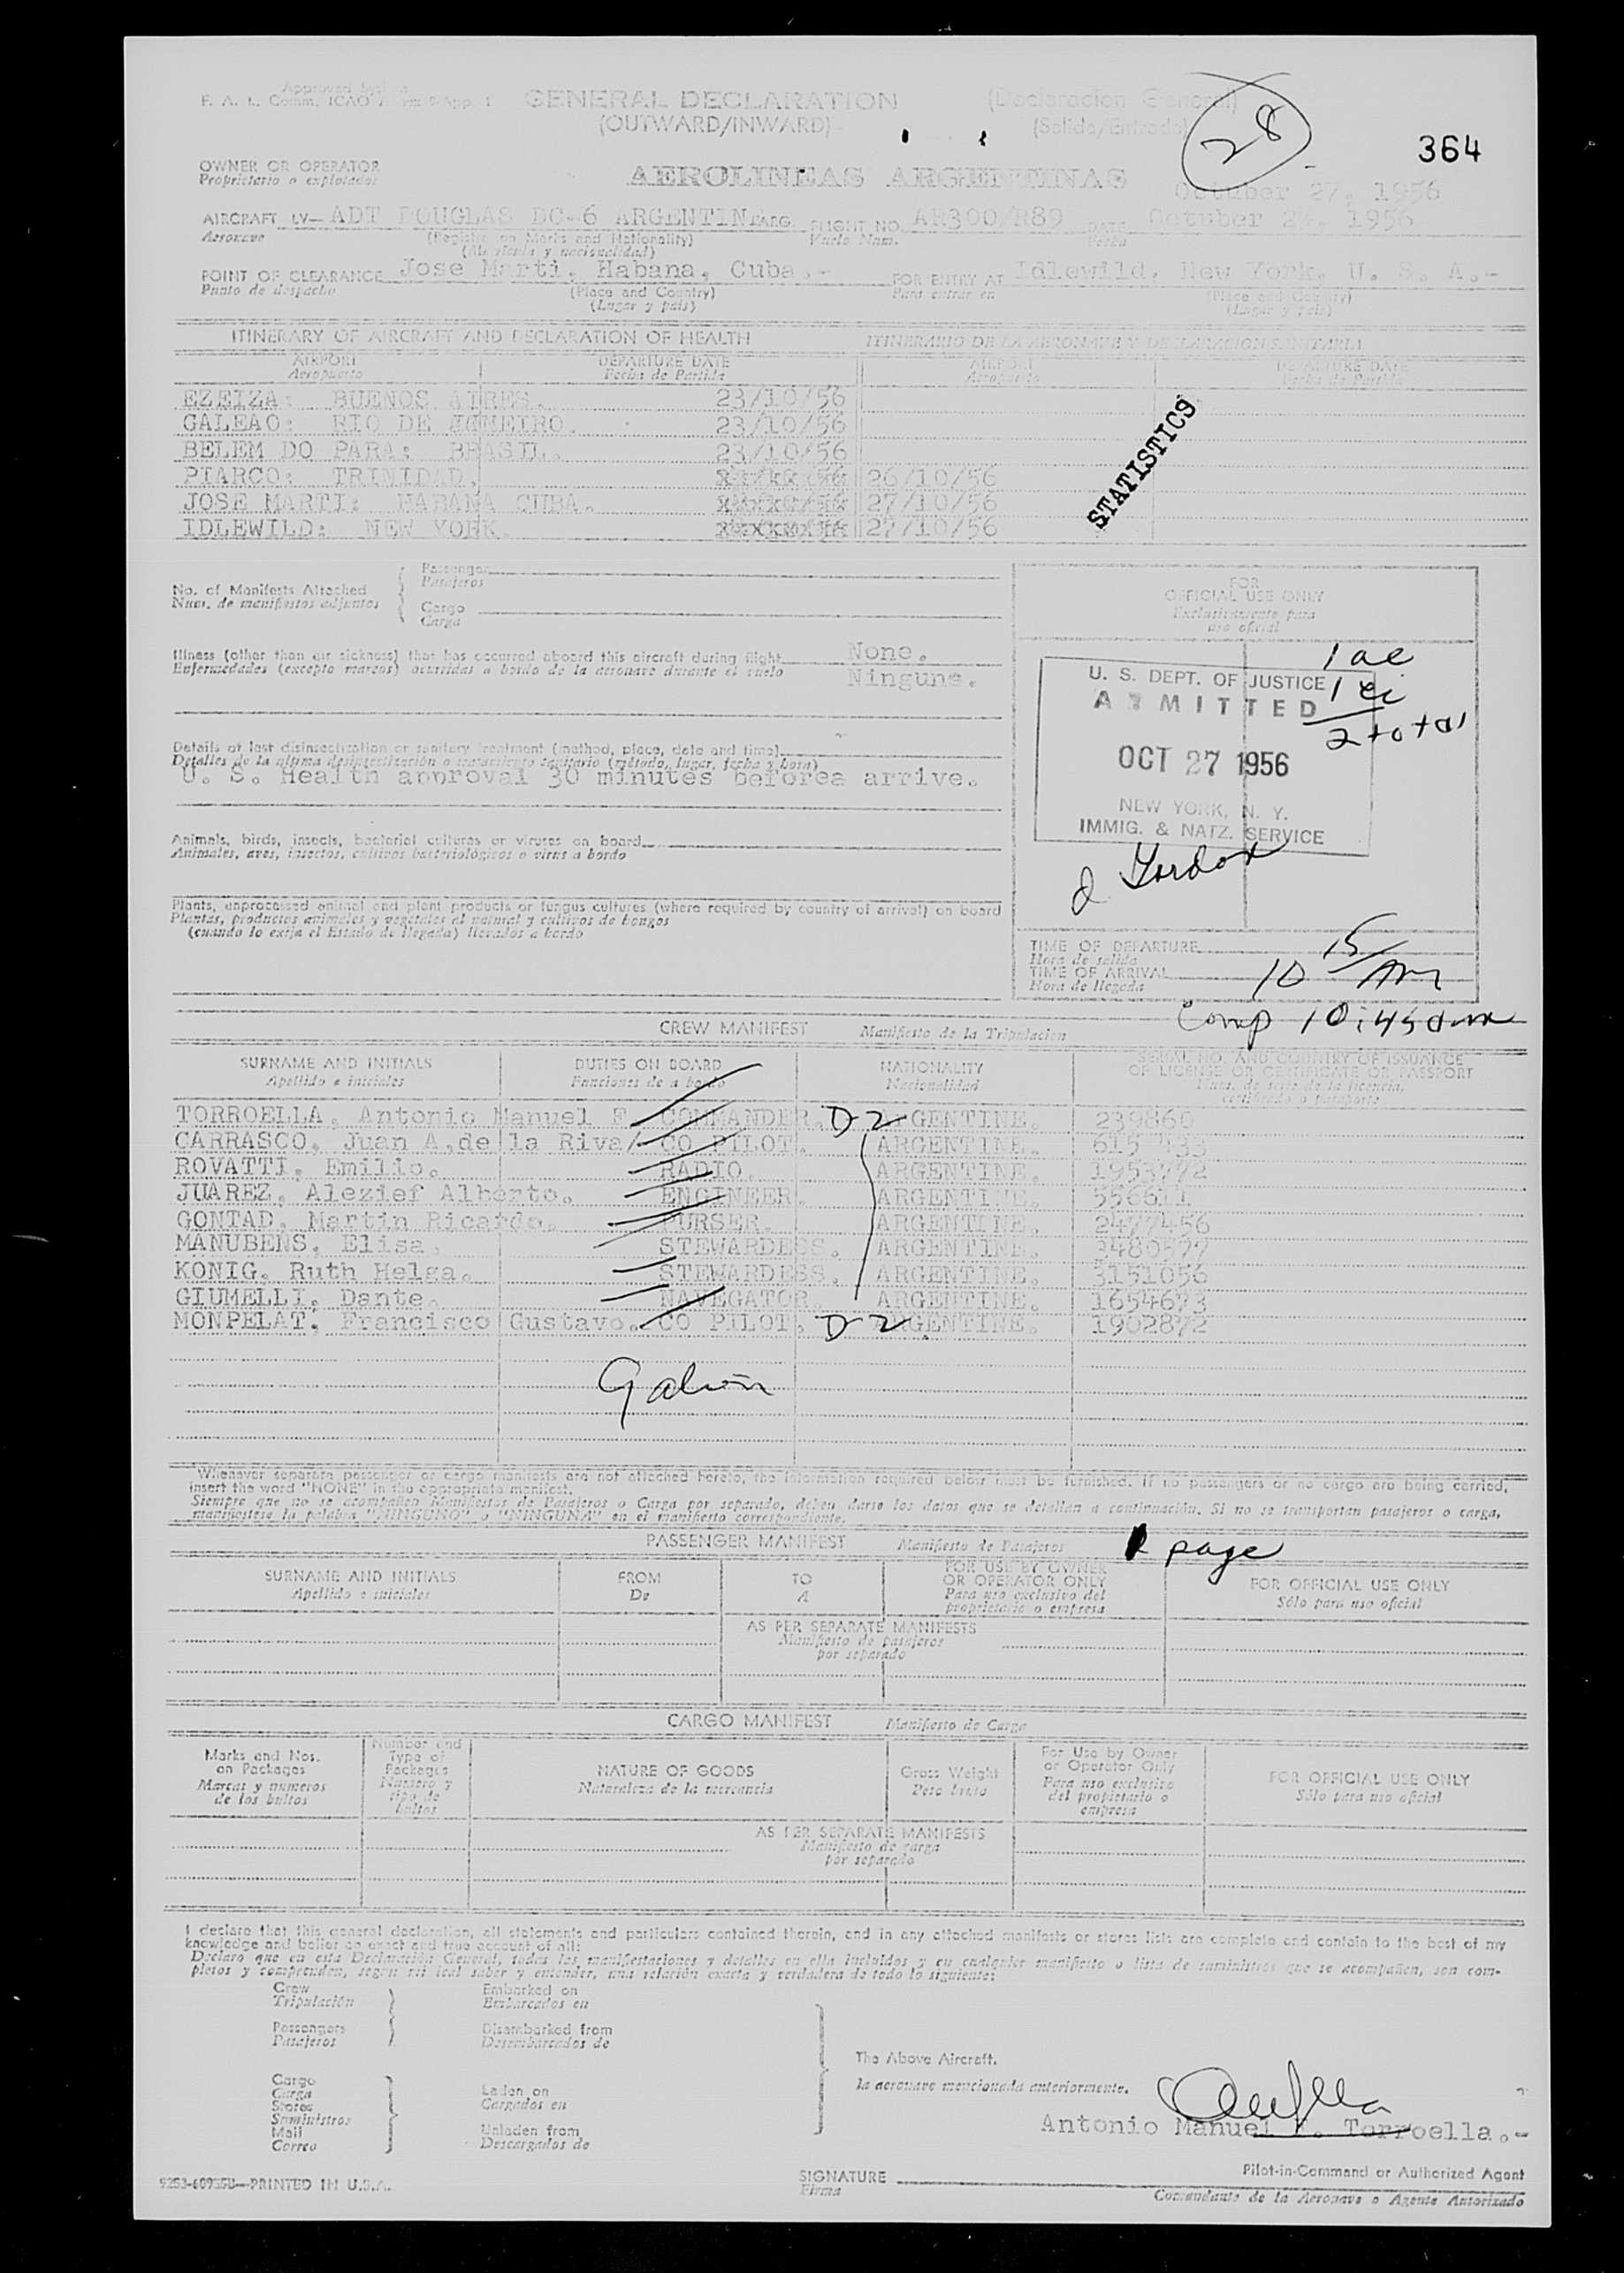 Approved by
F. A. L. Comm, ICAO App. 1
GENERAL DECLARATION (Declaracion General)
(OUTWARD/INWARD) (Salida/Entrada)
28
364
OWNER OR OPERATOR
Propietario o explotador
AEROLINEAS ARGENTINAS
October 27, 1956
AIRCRAFT LV- ADT DOUGLAS DC-6 ARGENTINE ARG. FLIGHT NO. AR300/R89 DATE October 1956
Aeronave (Registration Marks and Nationality) Vuelo Num. Fecha
(Matricula y nacionalidad)
POINT OF CLEARANCE Jose Marti, Habana, Cuba.- FOR ENTRY AT Idlewild, New York, U. S. A.-
Punto de despacho (Place and Country) Para entrar en (Place and Country)
(Lugar y pais) (Lugar y pais)
ITINERARY OF AIRCRAFT AND DECLARATION OF HEALTH ITINERARIO DE LA AERONAVE Y DECLARACION SANITARIA
AIRPORT DEPARTURE DATE AIRPORT DEPARTURE DATE
Aeropuerto Fecha de Partida Aeropuerto Fecha de Partida
EZEIZA: BUENOS AIRES. 23/10/56
GALEAO: RIO DE JENEIRO. 23/10/56
BELEM DO PARA: BRASIL. 23/10/56
PIARCO: TRINIDAD. 26/10/56
JOSE MARTI: HABANA CUBA. 27/10/56
IDLEWILD: NEW YORK. 27/10/56
STATISTICS
No. of Manifests Attached
Num. de manifiestos adjuntos
Passenger
Pasajeros
Cargo
Carga
FOR
OFFICIAL USE ONLY
Exclusivamente para
uso oficial
Illness (other than air sickness) that has occurred aboard this aircraft during flight None.
Enfermedades (excepto mareos) ocurridas a bordo de la aeronave durante el vuelo Ningune.
1 ac
1 ei
2 total
U. S. DEPT. OF JUSTICE
ADMITTED
OCT 27 1956
NEW YORK, N. Y.
IMMIG. & NATZ. SERVICE
Details of last disinsectization or sanitary treatment (method, place, date and time)
Detalles de la ultima desinsectización o tratamiento sanitario (método, lugar, fecha y hora)
U. S. Health approval 30 minutes beforea arrive.
Animals, birds, insects, bacterial cultures or viruses on board
Animales, aves, insectos, cultivos bacteriológicos o virus a bordo
Plants, unprocessed animal and plant products or fungus cultures (where required by country of arrival) on board
Plantas, productos animales y vegetales al natural y cultivos de hongos
(cuando lo exija el Estado de llegada) llevados a bordo
TIME OF DEPARTURE
Hora de salida
TIME OF ARRIVAL 10 15 AM
Hora de llegada
Comp 10:45am
CREW MANIFEST Manifiesto de la Tripulacion
SURNAME AND INITIALS DUTIES ON BOARD NATIONALITY SERIAL NO. AND COUNTRY OF ISSUANCE
OF LICENSE OR CERTIFICATE OR PASSPORT
Apellido e iniciales Funciones de a bordo Nacionalidad Num. de serie de la licencia,
certificado o pasaporte
TORROELLA, Antonio Manuel F. COMMANDER. D-2 ARGENTINE. 239860
CARRASCO, Juan A.de la Riva/ CO PILOT. ARGENTINE. 615 433
ROVATTI, Emilio. RADIO. ARGENTINE. 1953772
JUAREZ, Alezief Alberto. ENGINEER. ARGENTINE. 556611
GONTAD, Martin Ricardo. PURSER. ARGENTINE. 2477456
MANUBENS, Elisa. STEWARDESS. ARGENTINE. 3480577
KONIG, Ruth Helga. STEWARDESS. ARGENTINE. 3151056
GIUMELLI, Dante. NAVEGATOR. ARGENTINE. 1654673
MONPELAT, Francisco Gustavo. CO PILOT. D-2 ARGENTINE. 1902872
Whenever separate passenger or cargo manifests are not attached hereto, the information required below must be furnished. If no passengers or no cargo are being carried,
insert the word "NONE" in the appropriate manifest.
Siempre que no se acompañen Manifiestos de Pasajeros o Carga por separado, deben darse los datos que se detallan a continuación. Si no se transportan pasajeros o carga,
manifiestese la palabra "NINGUNO" o "NINGUNA" en el manifiesto correspondiente.
PASSENGER MANIFEST Manifiesto de Pasajeros page
SURNAME AND INITIALS FROM TO FOR USE BY OWNER
OR OPERATOR ONLY FOR OFFICIAL USE ONLY
Apellido e iniciales De A Para uso exclusivo del
propietario o empresa Sólo para uso oficial
AS PER SEPARATE MANIFESTS
Manifiesto de pasajeros
por separado
CARGO MANIFEST Manifiesto de Carga
Marks and Nos.
on Packages
Marcas y numeros
de los bultos
Number and
Type of
Packages
Numero y
tipo de
bultos
NATURE OF GOODS
Naturaleza de la mercancia
Gross Weight
Peso bruto
For Use by Owner
or Operator Only
Para uso exclusivo
del propietario o
empresa
FOR OFFICIAL USE ONLY
Sólo para uso oficial
AS PER SEPARATE MANIFESTS
Manifiesto de carga
por separado
I declare that this general declaration, all statements and particulars contained therein, and in any attached manifests or stores lists are complete and contain to the best of my
knowledge and belief an exact and true account of all:
Declaro que en esta Declaración General, todas las manifestaciones y detalles en ella incluidos y en cualquier manifiesto o lista de suministros que se acompañen, son com-
pletos y comprenden, segun mi leal saber y entender, una relación exacta y verdadera de todo lo siguiente:
Crew
Tripulación
Passengers
Pasajeros
Embarked on
Embarcados en
Disembarked from
Desembarcados de
Cargo
Carga
Stores
Suministros
Mail
Correo
Laden on
Cargados en
Unladen from
Descargados de
The Above Aircraft.
la aeronave mencionada anteriormente.
Antonio Manuel F. Torroella.-
9253-60935B—PRINTED IN U.S.A.
SIGNATURE
Firma
Pilot-in-Command or Authorized Agent
Comandante de la Aeronave o Agente Autorizado